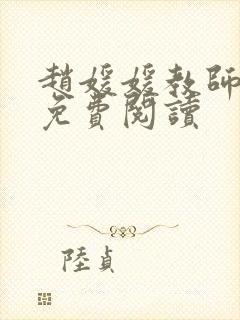 趙媛媛教師
免費閱讀
陸貞